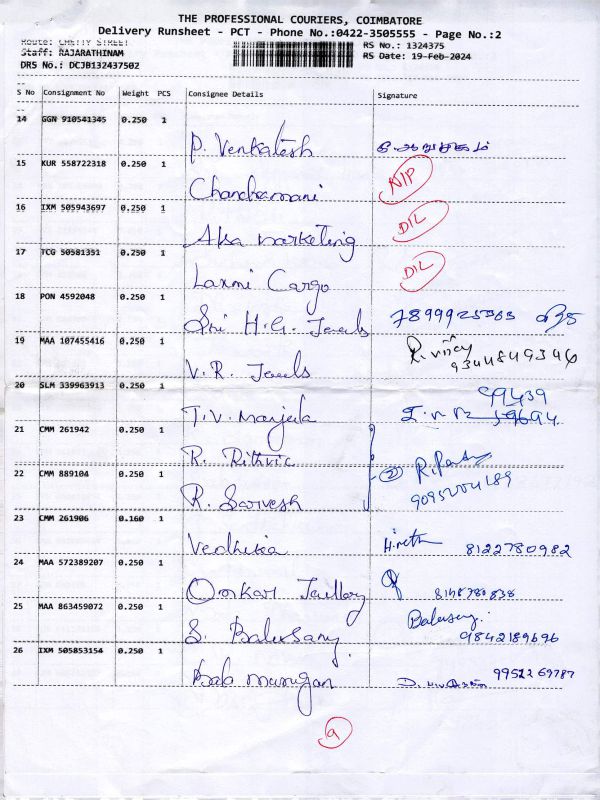 THE PROFESSIONAL COURIERS, COIMBATORE
Delivery Runsheet - PCT - Phone No.:0422-3505555 - Page No.:2
Route: CHETTY STREET
RS No.: 1324375
Staff: RAJARATHINAM
RS Date: 19-Feb-2024
DRS No.: DCJB132437502
S No Consignment No Weight PCS Consignee Details Signature
14 GGN 910541345 0.250 1
P. Venkatesh
15 KUR 558722318 0.250 1
Chandramani NIP
16 IXM 505943697 0.250 1
Aksa marketing DIL
17 TCG 50581351 0.250 1
Laxmi Cargo DIL
18 PON 4592048 0.250 1
Sri H.G. Jewels
19 MAA 107455416 0.250 1
V.R. Jewels R. vijay 9344849346
20 SLM 339963913 0.250 1
T.V. Manjula 99439
21 CMM 261942 0.250 1
R. Rithvic
22 CMM 889104 0.250 1
R. Sarvesh 2
23 CMM 261906 0.160 1
Vedhika 8122780982
24 MAA 572389207 0.250 1
Omkar Jewllery
25 MAA 863459072 0.250 1
S. Balusamy 9842189696
26 IXM 505853154 0.250 1
Bala murugan 9952269787
9